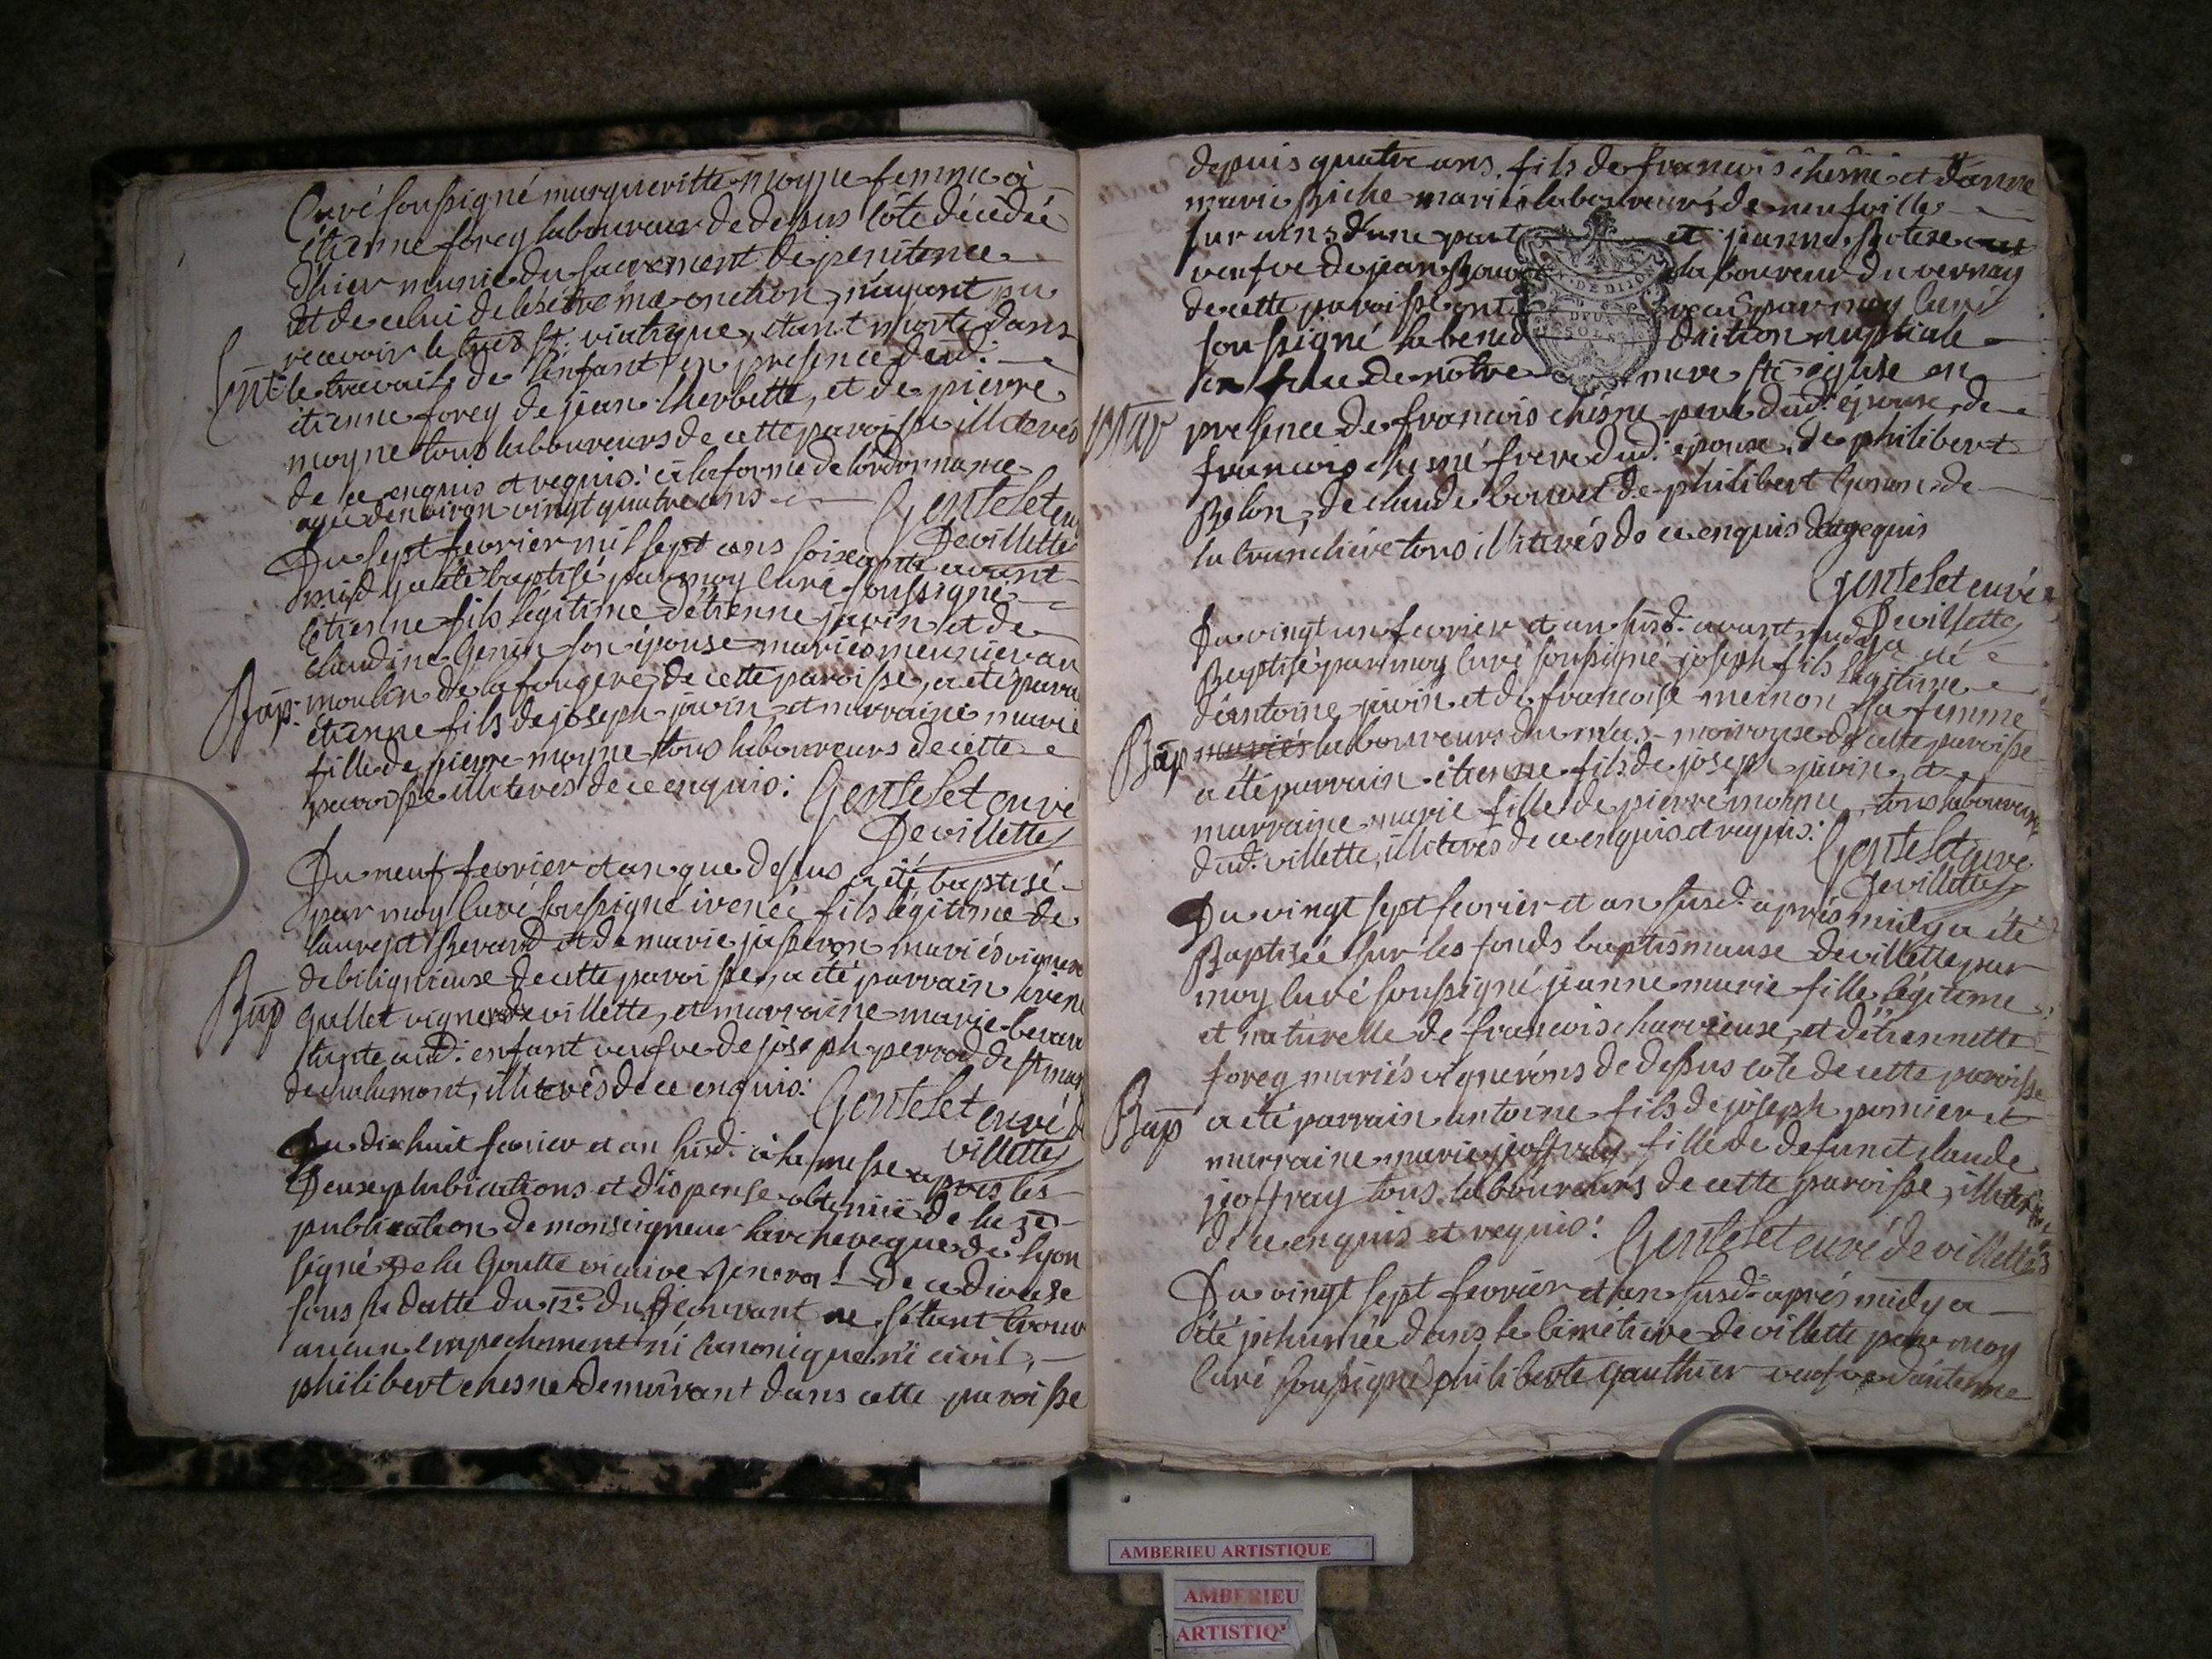 Curé soussigné margueritte moyne femme à
étienne forey laboureur de dessus côte décédée
d'hier munie du sacrement de penitence
et de celui de l'extrême onction, n'ayant pu
recevoir le très st. viatique, étant morte dans
Ent. le travail de l'enfant, en presence dud:
étienne forey de jean lherbette, et de pierre
moyne tous laboureurs de cette paroisse illiterés
de ce enquis et requis: à la forme de l'ordonnance
agée d'environ vingt quatre ans
Genteletcuré
Devillette
Du sept fevrier mil sept cens soixante avant
midy a été baptisé par moy Curé soussigné
étienne fils légitime d'étienne javin et de
claudine Genin son épouse mariés meunier au
Bap: moulin de la fougere, de cette paroisse, a été parain
étienne fils de joseph javin et marraine marie
fille de pierre moyne tous laboureurs de cette
paroisse illiterés de ce enquis: Gentelet curé
Devillette
Du neuf fevrier et an que dessus a été baptisé
par moy Curé soussigné irenée fils légitime de
laurent Berard et de marie jasperon mariés vignerons
de bilignieuse de cette paroisse, a été parrain irené
Bap Gallet vigneron de villette, et marraine marie berard
tante aud: enfant veufve de joseph perrod de st mar
de chalamont, illiterés de ce enquis: Gentelet curé d
villette
Du dix huit fevrier et an susd: à la messe après les
Deux plubications et dispense obtenüe de la 3e
publication de monseigneur larcheveque de lyon
signé De la Goutte vicaire General de ce diocese
sous la datte du 12e du courant ne s'étant trouvé
aucun empechement ni canonique ni civil,
philibert chesne demeurant dans cette paroisse
depuis quatre ans, fils de francois chesne et d'anne
marie Biche mariés laboureurs de neufville
sur ains d'une part et jeanne
veufve de jean laboureur du vernay
de cette paroisse ont reçu par moy Curé
soussigné la bened diction nuptiale
en face de nôtre mere ste église en
Mar presence de francois chesne pere dud: epoux, de
francois chesne frere dud: epoux, de philibert
Belon, de claude bouvet de philibert Genon de
la tranchiére tous illiterés de ce enquis et requis
Gentelet curé
Devillette
Du vingt un fevrier et an susd: avant midy a été
Baptisé par moy Curé soussigné joseph fils légitime
d'antoine javin et de francoise meinon sa femme
Bap mariés laboureurs du mas de cette paroisse
a été parrain étienne fils de joseph javin et
marraine marie fille de pierre moinne, tous laboureurs
dud: villette, illiterés de ce enquis et requis:
Gentelet curé
Devillette
Du vingt sept fevrier et an susd: après midy a été
Baptisée sur les fonds baptismaux de villette par
moy Curé soussigné jeanne marie fille légitime
et naturelle de francois charvieuse et d'étiennette
forey mariés vignerons de dessus côte de cette paroisse
Bap a été parrain antoine fils de joseph pomier et
marraine marie jeoffray fille de defunct claude
jeoffray tous laboureurs de cette paroisse, illiterés
de ce enquis et requis: Gentelet curé de villette
Du vingt sept fevrier et an susd: après midy a
été inhumée dans le cimétiere de villette par moy
Curé soussigné philiberte gauthier veufve d'antoine
AMBERIEU ARTISTIQUE
AMBERIEU
ARTISTIQ